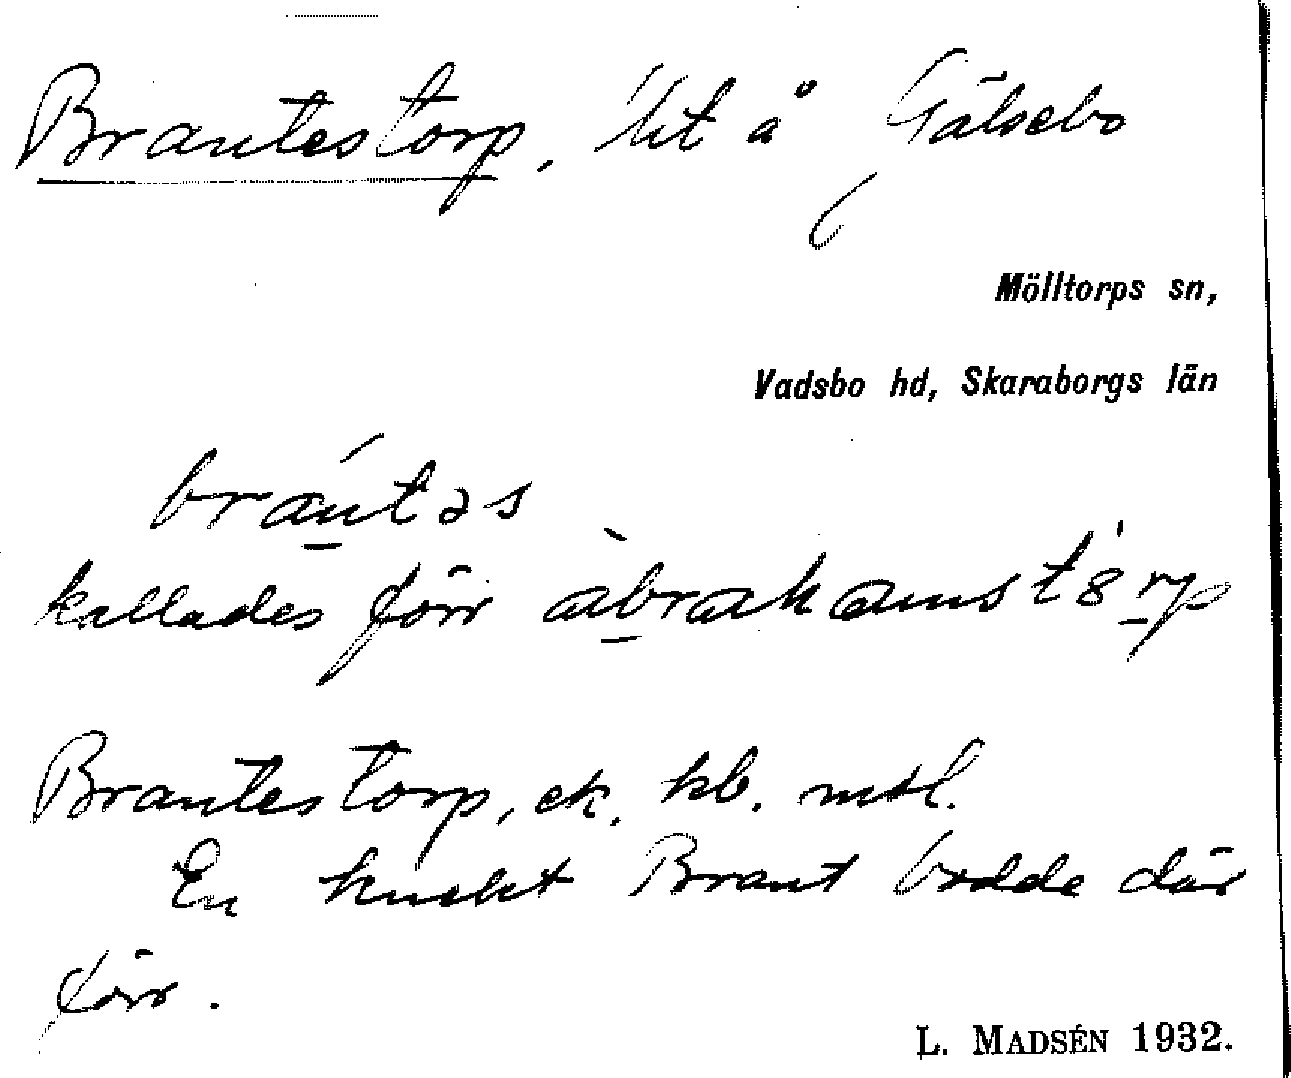 Brantestorp, lht å Gälsebo
Mölltorps sn,
Vadsbo hd, Skaraborgs län
brántəs
kallades förr àbrahamstórp
Brantestorp, ek. kb. mtl.
En knekt Brant bodde där
förr.
L. MADSÉN 1932.